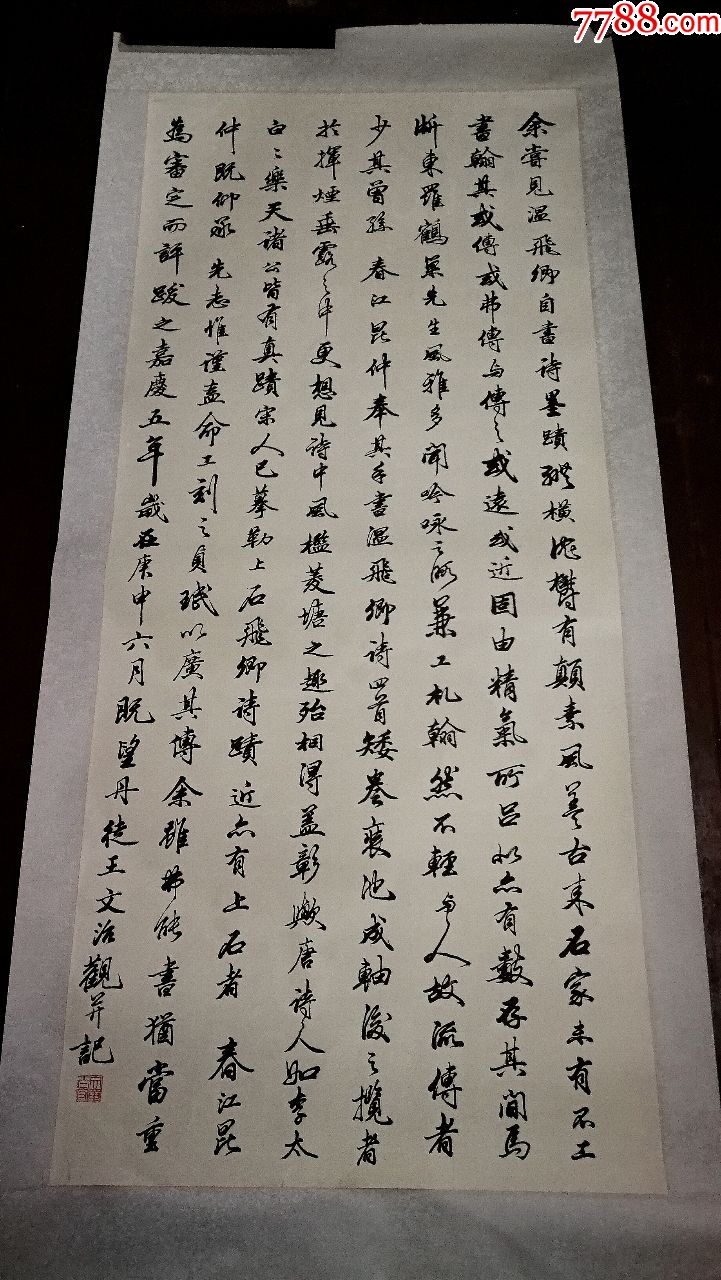 7788.com
余嘗見溫飛卿自書詩墨蹟縱橫沈鬱有顛素風蓋古来名家未有不工
書翰其或傳或弗傳與傳之或遠或近固由精氣所呂亦有數存其間焉
浙東羅鶴先生風雅多聞吟咏之所兼工札翰然不輕與人故流傳者
少其曾孫春江昆仲奉其手書溫飛卿詩四首矮卷裝池成軸後之攬者
於揮煙垂露之中更想見詩中風檻菱塘之趣殆相得益彰歟唐詩人如李太
白樂天諸公皆有真蹟宋人已摹勒上石飛卿詩蹟近亦有上石者春江昆
仲既仰承先志惟謹益命工刻之貞珉以廣其傳余雖弗能書猶當重
為審定而評跋之嘉慶五年歲在庚申六月既望丹徒王文治觀并記